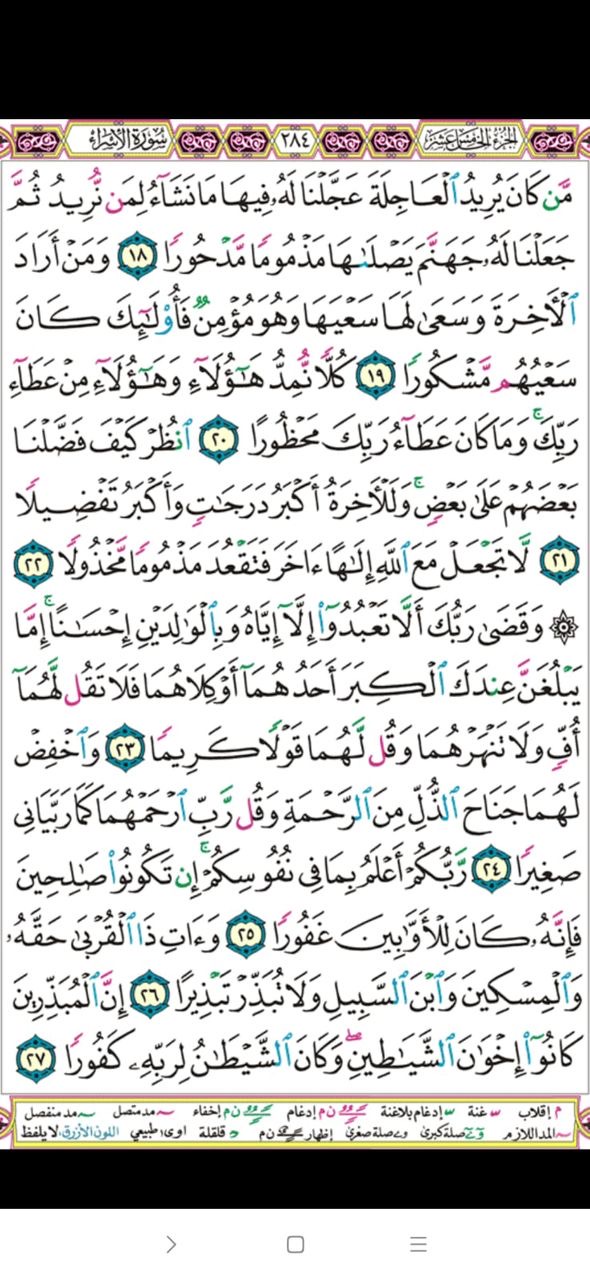 الجزء الخامس عشر ٢٨٤ سورة الإسراء
مَّن كَانَ يُرِيدُ ٱلْعَاجِلَةَ عَجَّلْنَا لَهُۥ فِيهَا مَا نَشَآءُ لِمَن نُّرِيدُ ثُمَّ
جَعَلْنَا لَهُۥ جَهَنَّمَ يَصْلَىٰهَا مَذْمُومًا مَّدْحُورًا ١٨ وَمَنْ أَرَادَ
ٱلْأَخِرَةَ وَسَعَىٰ لَهَا سَعْيَهَا وَهُوَ مُؤْمِنٌ فَأُو۟لَٰٓئِكَ كَانَ
سَعْيُهُم مَّشْكُورًا ١٩ كُلًّا نُّمِدُّ هَٰٓؤُلَآءِ وَهَٰٓؤُلَآءِ مِنْ عَطَآءِ
رَبِّكَ ۚ وَمَا كَانَ عَطَآءُ رَبِّكَ مَحْظُورًا ٢٠ ٱنظُرْ كَيْفَ فَضَّلْنَا
بَعْضَهُمْ عَلَىٰ بَعْضٍ ۚ وَلَلْأَخِرَةُ أَكْبَرُ دَرَجَٰتٍ وَأَكْبَرُ تَفْضِيلًا
٢١ لَّا تَجْعَلْ مَعَ ٱللَّهِ إِلَٰهًا ءَاخَرَ فَتَقْعُدَ مَذْمُومًا مَّخْذُولًا ٢٢
۞ وَقَضَىٰ رَبُّكَ أَلَّا تَعْبُدُوٓا۟ إِلَّآ إِيَّاهُ وَبِٱلْوَٰلِدَيْنِ إِحْسَٰنًا ۚ إِمَّا
يَبْلُغَنَّ عِندَكَ ٱلْكِبَرَ أَحَدُهُمَآ أَوْ كِلَاهُمَا فَلَا تَقُل لَّهُمَآ
أُفٍّ وَلَا تَنْهَرْهُمَا وَقُل لَّهُمَا قَوْلًا كَرِيمًا ٢٣ وَٱخْفِضْ
لَهُمَا جَنَاحَ ٱلذُّلِّ مِنَ ٱلرَّحْمَةِ وَقُل رَّبِّ ٱرْحَمْهُمَا كَمَا رَبَّيَانِى
صَغِيرًا ٢٤ رَّبُّكُمْ أَعْلَمُ بِمَا فِى نُفُوسِكُمْ ۚ إِن تَكُونُوا۟ صَٰلِحِينَ
فَإِنَّهُۥ كَانَ لِلْأَوَّٰبِينَ غَفُورًا ٢٥ وَءَاتِ ذَا ٱلْقُرْبَىٰ حَقَّهُۥ
وَٱلْمِسْكِينَ وَٱبْنَ ٱلسَّبِيلِ وَلَا تُبَذِّرْ تَبْذِيرًا ٢٦ إِنَّ ٱلْمُبَذِّرِينَ
كَانُوٓا۟ إِخْوَٰنَ ٱلشَّيَٰطِينِ ۖ وَكَانَ ٱلشَّيْطَٰنُ لِرَبِّهِۦ كَفُورًا ٢٧
م إقلاب غنة إدغام بلاغنة ن م إدغام ن م إخفاء مد متصل مد منفصل
المد اللازم صلة كبرى صلة صغرى إظهار ن م قلقلة اوى طبيعي اللون الأزرق: لا يلفظ